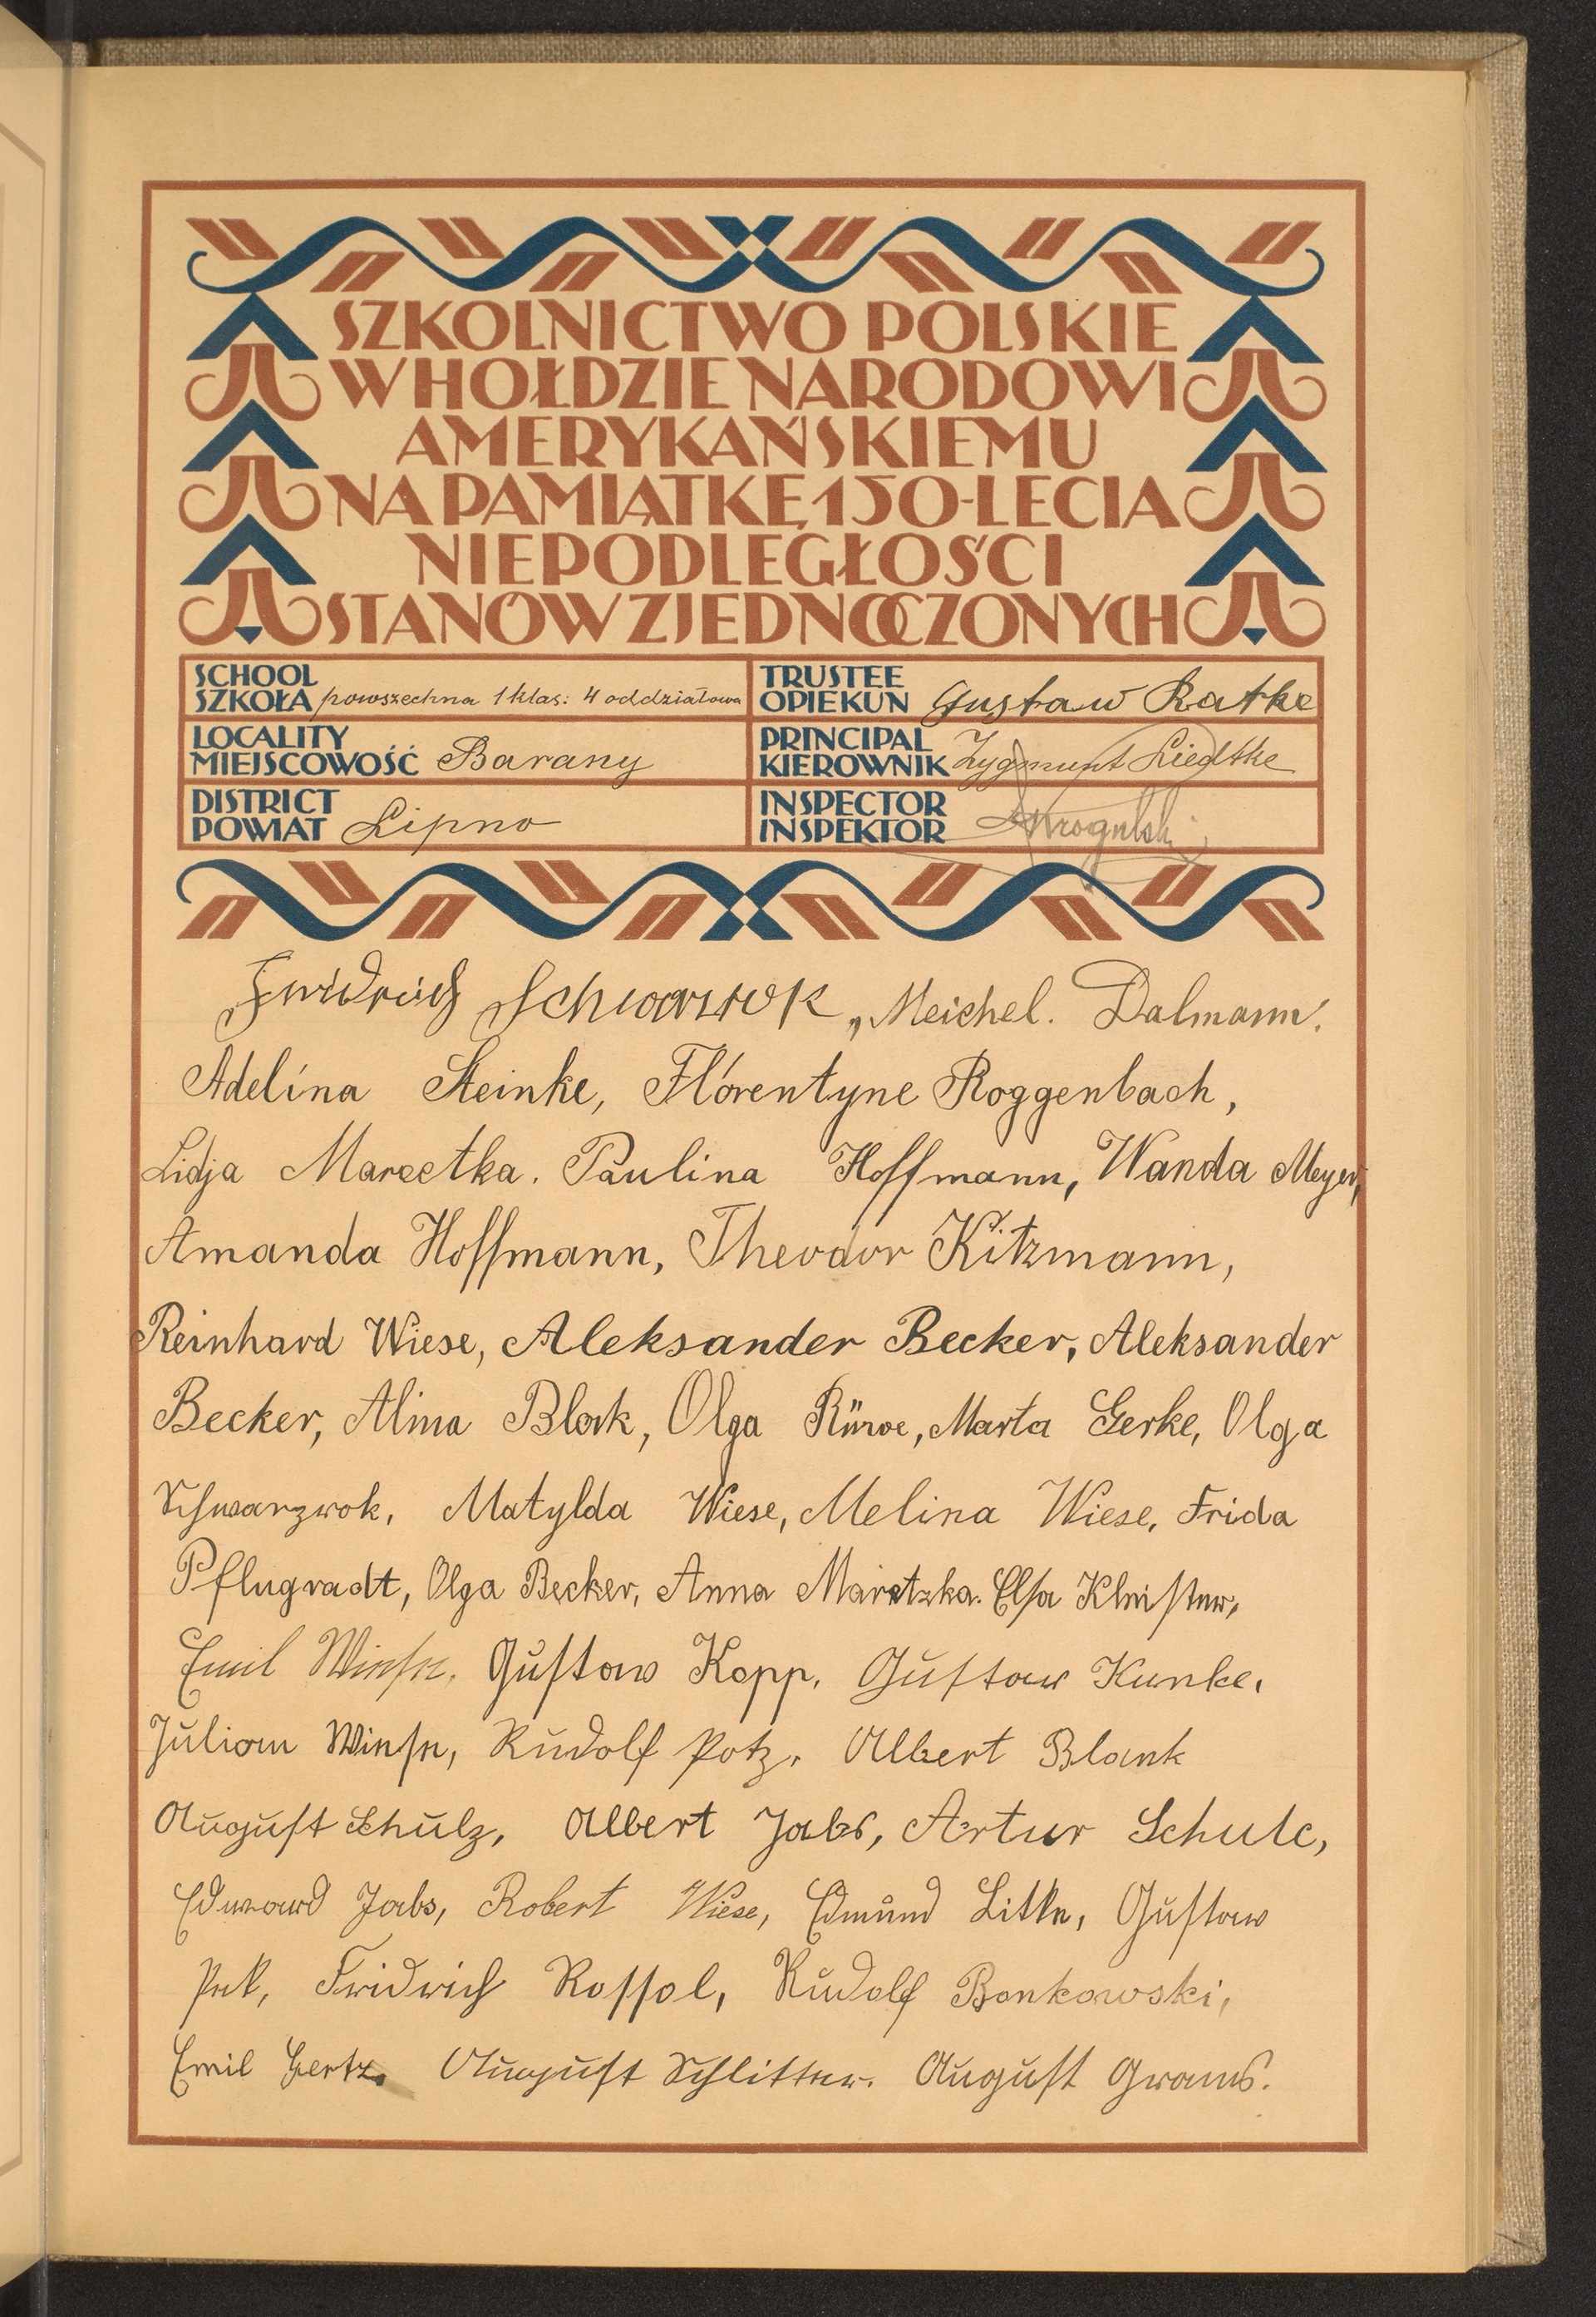 SZKOLNICTWO POLSKIE
W HOŁDZIE NARODOWI
AMERYKAŃSKIEMU
NA PAMIĄTKĘ 150-LECIA
NIEPODLEGŁOŚCI
STANÓW ZJEDNOCZONYCH
SCHOOL
SZKOŁA powszechna 1 klas: 4 oddziałowa
TRUSTEE
OPIEKUN Gustaw Ratke
LOCALITY
MIEJSCOWOŚĆ Barany
PRINCIPAL
KIEROWNIK Zygmunt Liedtke
DISTRICT
POWIAT Lipno
INSPECTOR
INSPEKTOR
Fridrich Schwarzwok, Meichel. Dalmann.
Adelina Steinke, Florentyne Roggenbach,
Lidja Marectka. Paulina Hoffmann, Wanda Meyer,
Amanda Hoffmann, Theodor Kitzmann,
Reinhard Wiese, Aleksander Becker, Aleksander
Becker, Alma Blok, Olga Marta Gerke, Olga
Schwarzwok, Matylda Wiese, Melina Wiese, Frida
Pflugradt, Olga Becker, Anna Maretzka. Elsa Kleister,
Emil Wiese, Gustaw Kopp, Gustaw Kunke,
Julian Wiese, Rudolf Potz, Albert Blank
August Schulz, Albert Jabs, Artur Schulc,
Edward Jabs, Robert Wiese, Edmund Litke, Gustaw
Fridrich Rossol, Rudolf Bonkowski,
Emil Gertz. August Schlitter. August Grams.